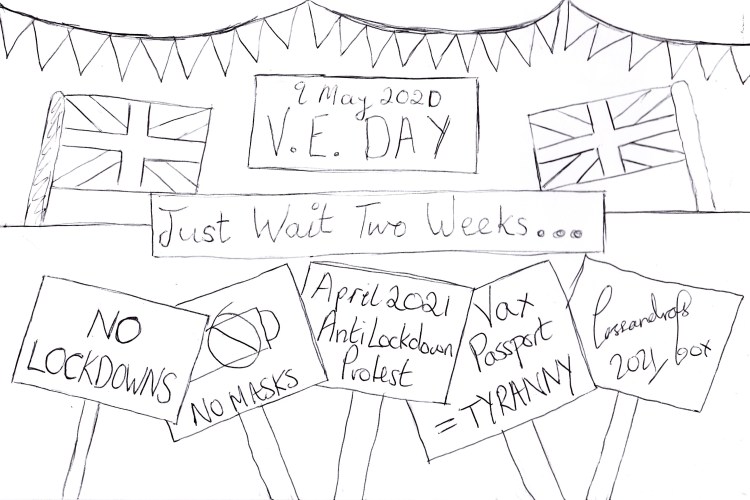 9 May 2020
V.E. DAY
Just Wait Two Weeks...
NO
LOCKDOWNS
NO MASKS
April 2021
Anti Lockdown
Protest
Vax
Passport
= TYRANNY
Cassandra's
2021 box